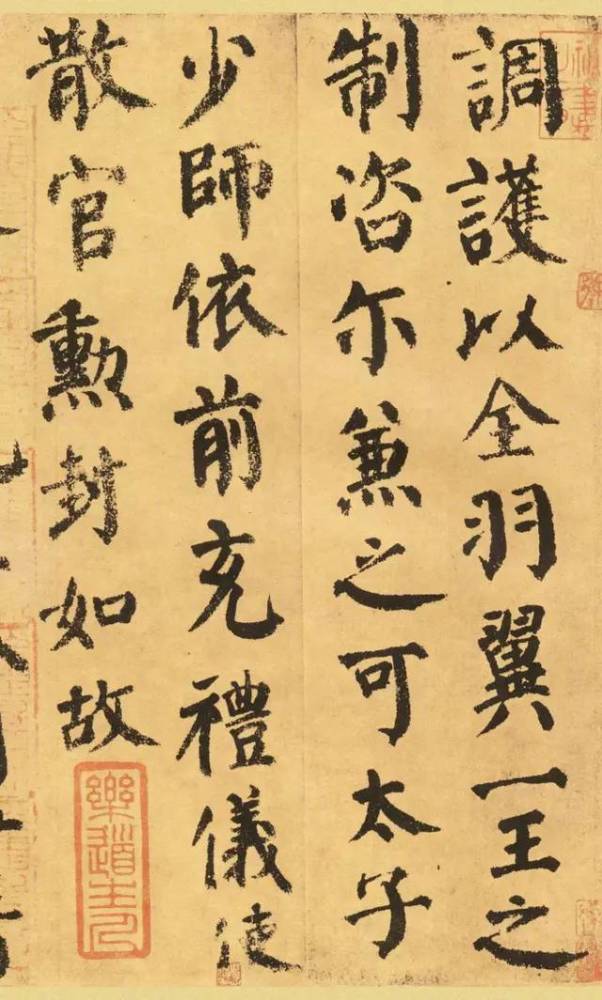 調護以全羽翼一王之
制咨尔兼之可太子
少師依前充禮儀使
散官勲封如故